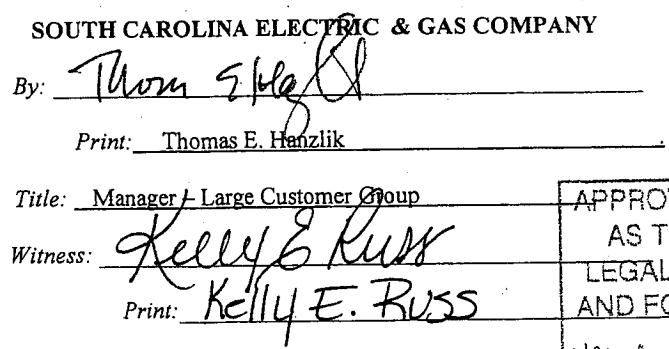 SOUTH CAROLINA ELECTRIC & GAS COMPANY
By: Thom E
Print: Thomas E. Hanzlik
Title: Manager – Large Customer Group
Witness: Kelly E Russ
Print: Kelly E. Russ
APPRO
AS T
LEGAL
AND FO